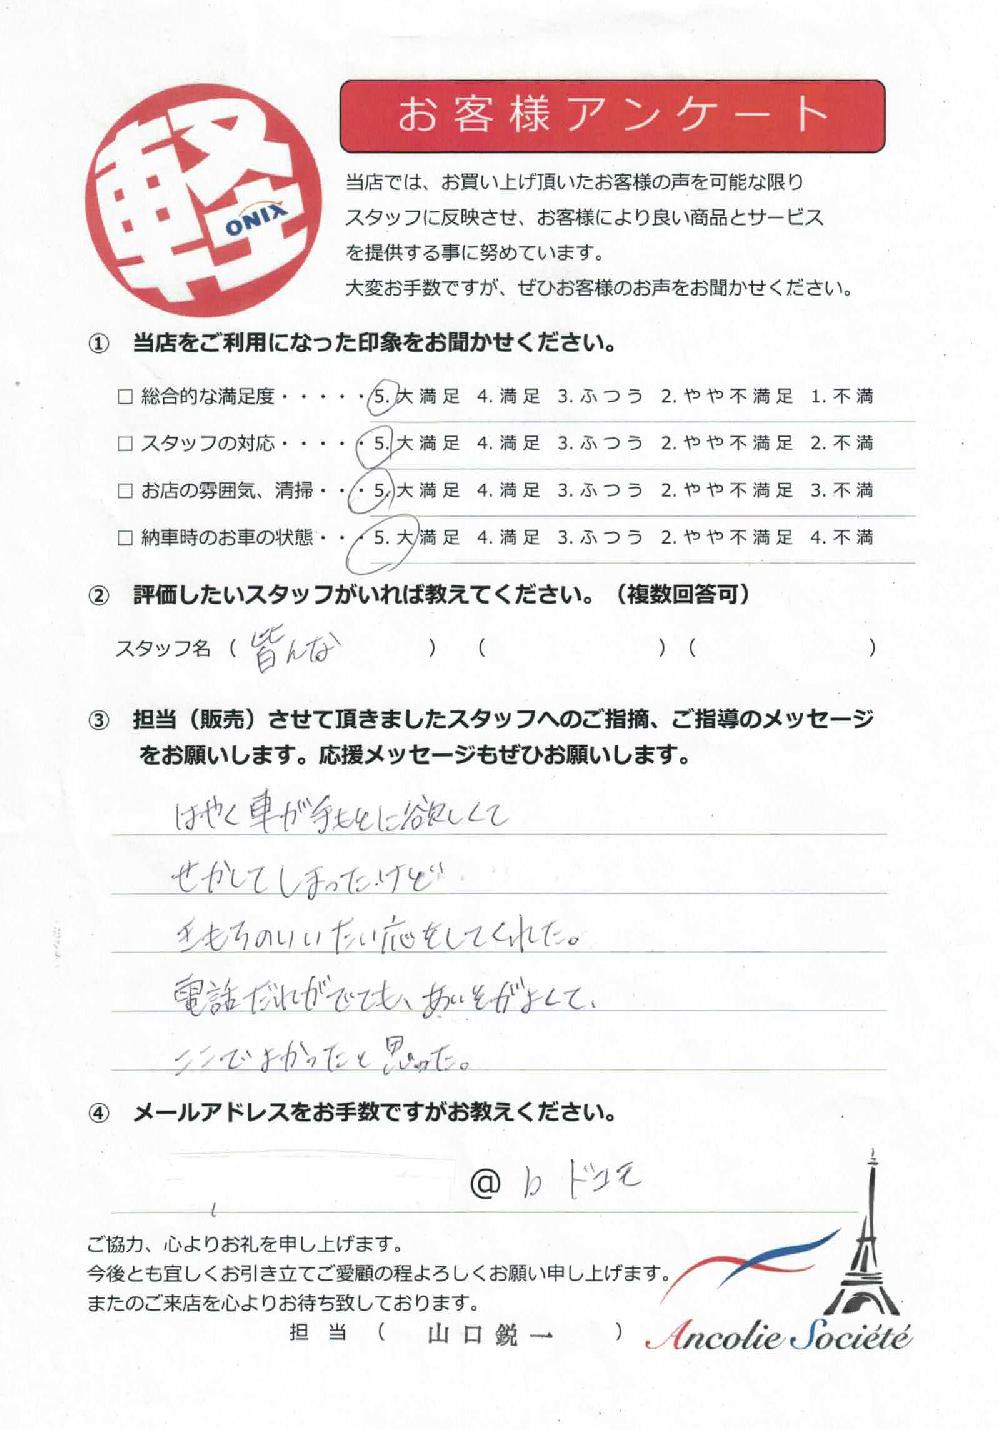 軽
ONIX
お客様アンケート
当店では、お買い上げ頂いたお客様の声を可能な限り
スタッフに反映させ、お客様により良い商品とサービス
を提供する事に努めています。
大変お手数ですが、ぜひお客様のお声をお聞かせください。
① 当店をご利用になった印象をお聞かせください。
□ 総合的な満足度・・・・・5.大満足 4.満足 3.ふつう 2.やや不満足 1.不満
□ スタッフの対応・・・・・5.大満足 4.満足 3.ふつう 2.やや不満足 2.不満
□ お店の雰囲気、清掃・・・5.大満足 4.満足 3.ふつう 2.やや不満足 3.不満
□ 納車時のお車の状態・・・5.大満足 4.満足 3.ふつう 2.やや不満足 4.不満
② 評価したいスタッフがいれば教えてください。（複数回答可）
スタッフ名（ 皆んな ）（ ）（ ）
③ 担当（販売）させて頂きましたスタッフへのご指摘、ご指導のメッセージ
をお願いします。応援メッセージもぜひお願いします。
はやく車が手もとに欲しくて
せかしてしまったけど
きもちのいいたい応をしてくれた。
電話だれがでても、あいそがよくて、
ここでよかったと思った。
④ メールアドレスをお手数ですがお教えください。
@ b ドコモ
ご協力、心よりお礼を申し上げます。
今後とも宜しくお引き立てご愛顧の程よろしくお願い申し上げます。
またのご来店を心よりお待ち致しております。
担当（ 山口鋭一 ）
Ancolie Société